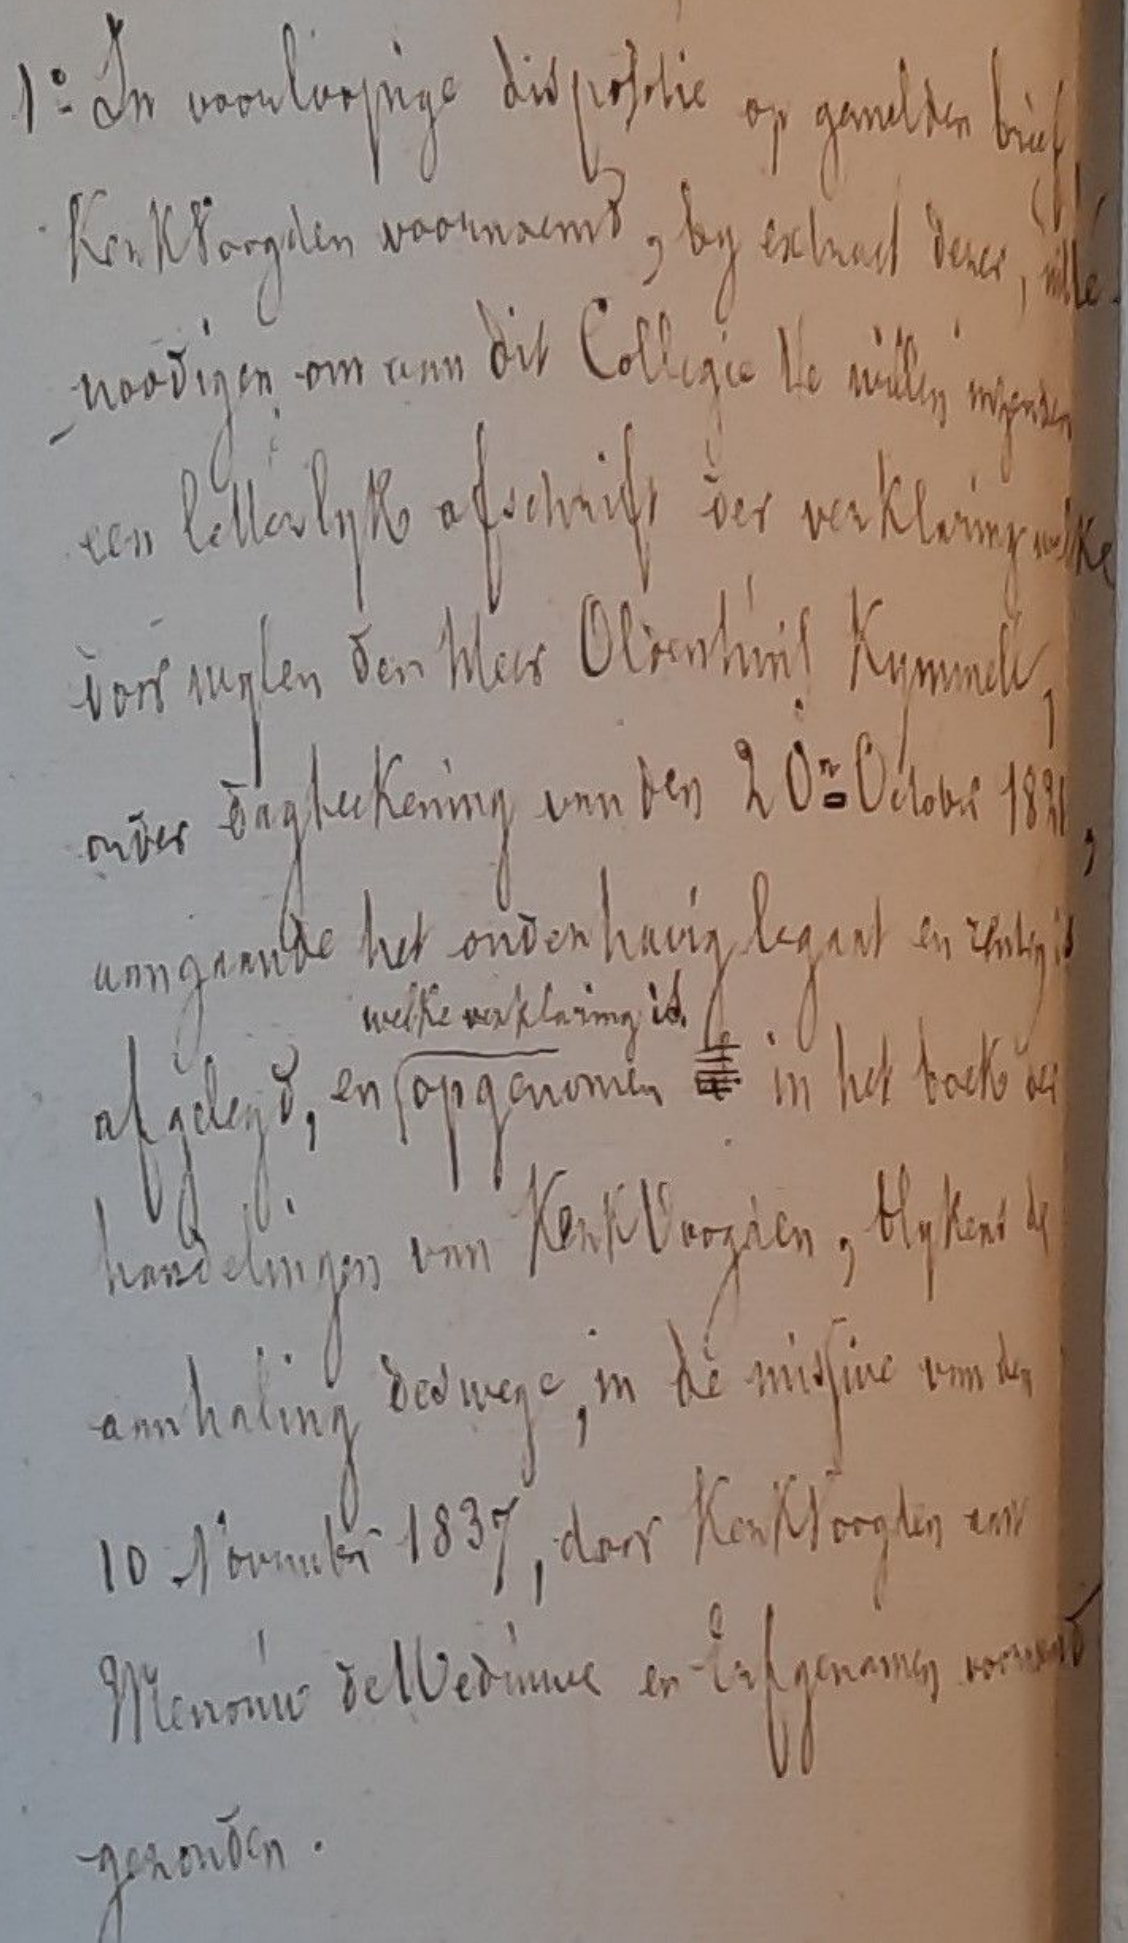 1º In voorloopige dispositie op gemelden brief
KerkVoogden voornoemd, by extract dezer, uitte
noodigen om aan dit Collegie te willen inzenden
een letterlyk afschrift der verklaring welke
door wylen den Heer Oldenhuis Kymmell,
onder dagteekening van den 20n October 1821,
aangaande het onderhavig legaat en
welke verklaring is
afgelegd, en opgenomen in het boek der
handelingen van KerkVoogden, blykens de
aanhaling deswege, in de missive van den
10 November 1837, door KerkVoogden aan
Mevrouw de Weduwe en Erfgenamen voornoemd
gezonden.